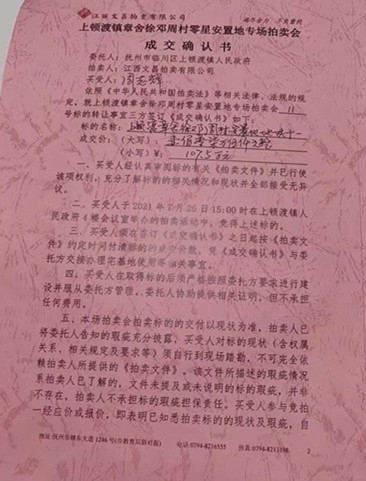 江西文昌拍卖有限公司 竭尽全力 不负重托
上顿渡镇章舍徐邓周村零星安置地专场拍卖会
成交确认书
委托人：抚州市临川区上顿渡镇人民政府
拍卖人：江西文昌拍卖有限公司
买受人：
依照《中华人民共和国拍卖法》等相关法律、法规的规
定，就上顿渡镇章舍徐邓周村零星安置地专场拍卖会 11
号标的转让事宜三方签订《成交确认书》如下：
标的名称：
成交价：（大写）：
（小写）￥： 107.5万元
一、买受人经认真审阅标的有关《拍卖文件》并已行使
该项权利，充分了解标的的相关情况和现状并全部接受无异
议。
二、买受人于 2021 年 7 月 26 日 15:00 时在上顿渡镇人
民政府 4 楼会议室举办的拍卖活动中，竞得上述标的。
三、买受人须在签订《成交确认书》之日起按《拍卖文
件》约定时间付清标的的成交价款，凭《成交确认书》与委
托方交接办理宅基地使用等相关事宜。
四、买受人在取得标的后须严格按照委托方要求进行建
设并服从委托方管理，委托人协助提供相关证明，但不承担
任何费用。
五、本场拍卖会拍卖标的的交付以现状为准，拍卖人已
将委托人告知的瑕疵充分披露，买受人对标的现状（含权属
关系、相关规定及要求等）须自行到现场踏勘，不可完全依
赖拍卖人所提供的《拍卖文件》。该文件所描述的瑕疵情况
系拍卖人已了解的，文件未提及或未说明的标的瑕疵，并非
不存在，拍卖人不承担标的瑕疵担保责任。买受人参与竞拍
一经应价或报价，即表明已知悉拍卖标的的现状及瑕疵，自
地址:抚州市赣东大道 1286 号(市教育局斜对面) 电话:0794-8216555 传真:0794-8211198 2